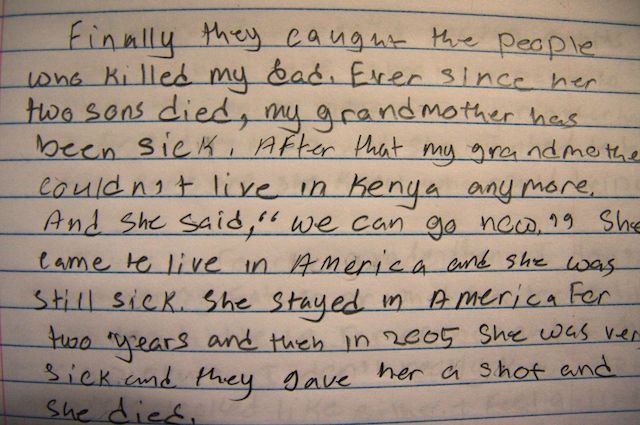 Finally they caught the people
who killed my dad. Ever since her
two sons died, my grandmother has
been sick. After that my grandmothe
couldn't live in Kenya anymore.
And she said, "we can go now." She
came to live in America and she was
still sick. She stayed in America for
two years and then in 2005 she was ver
sick and they gave her a shot and
she died.